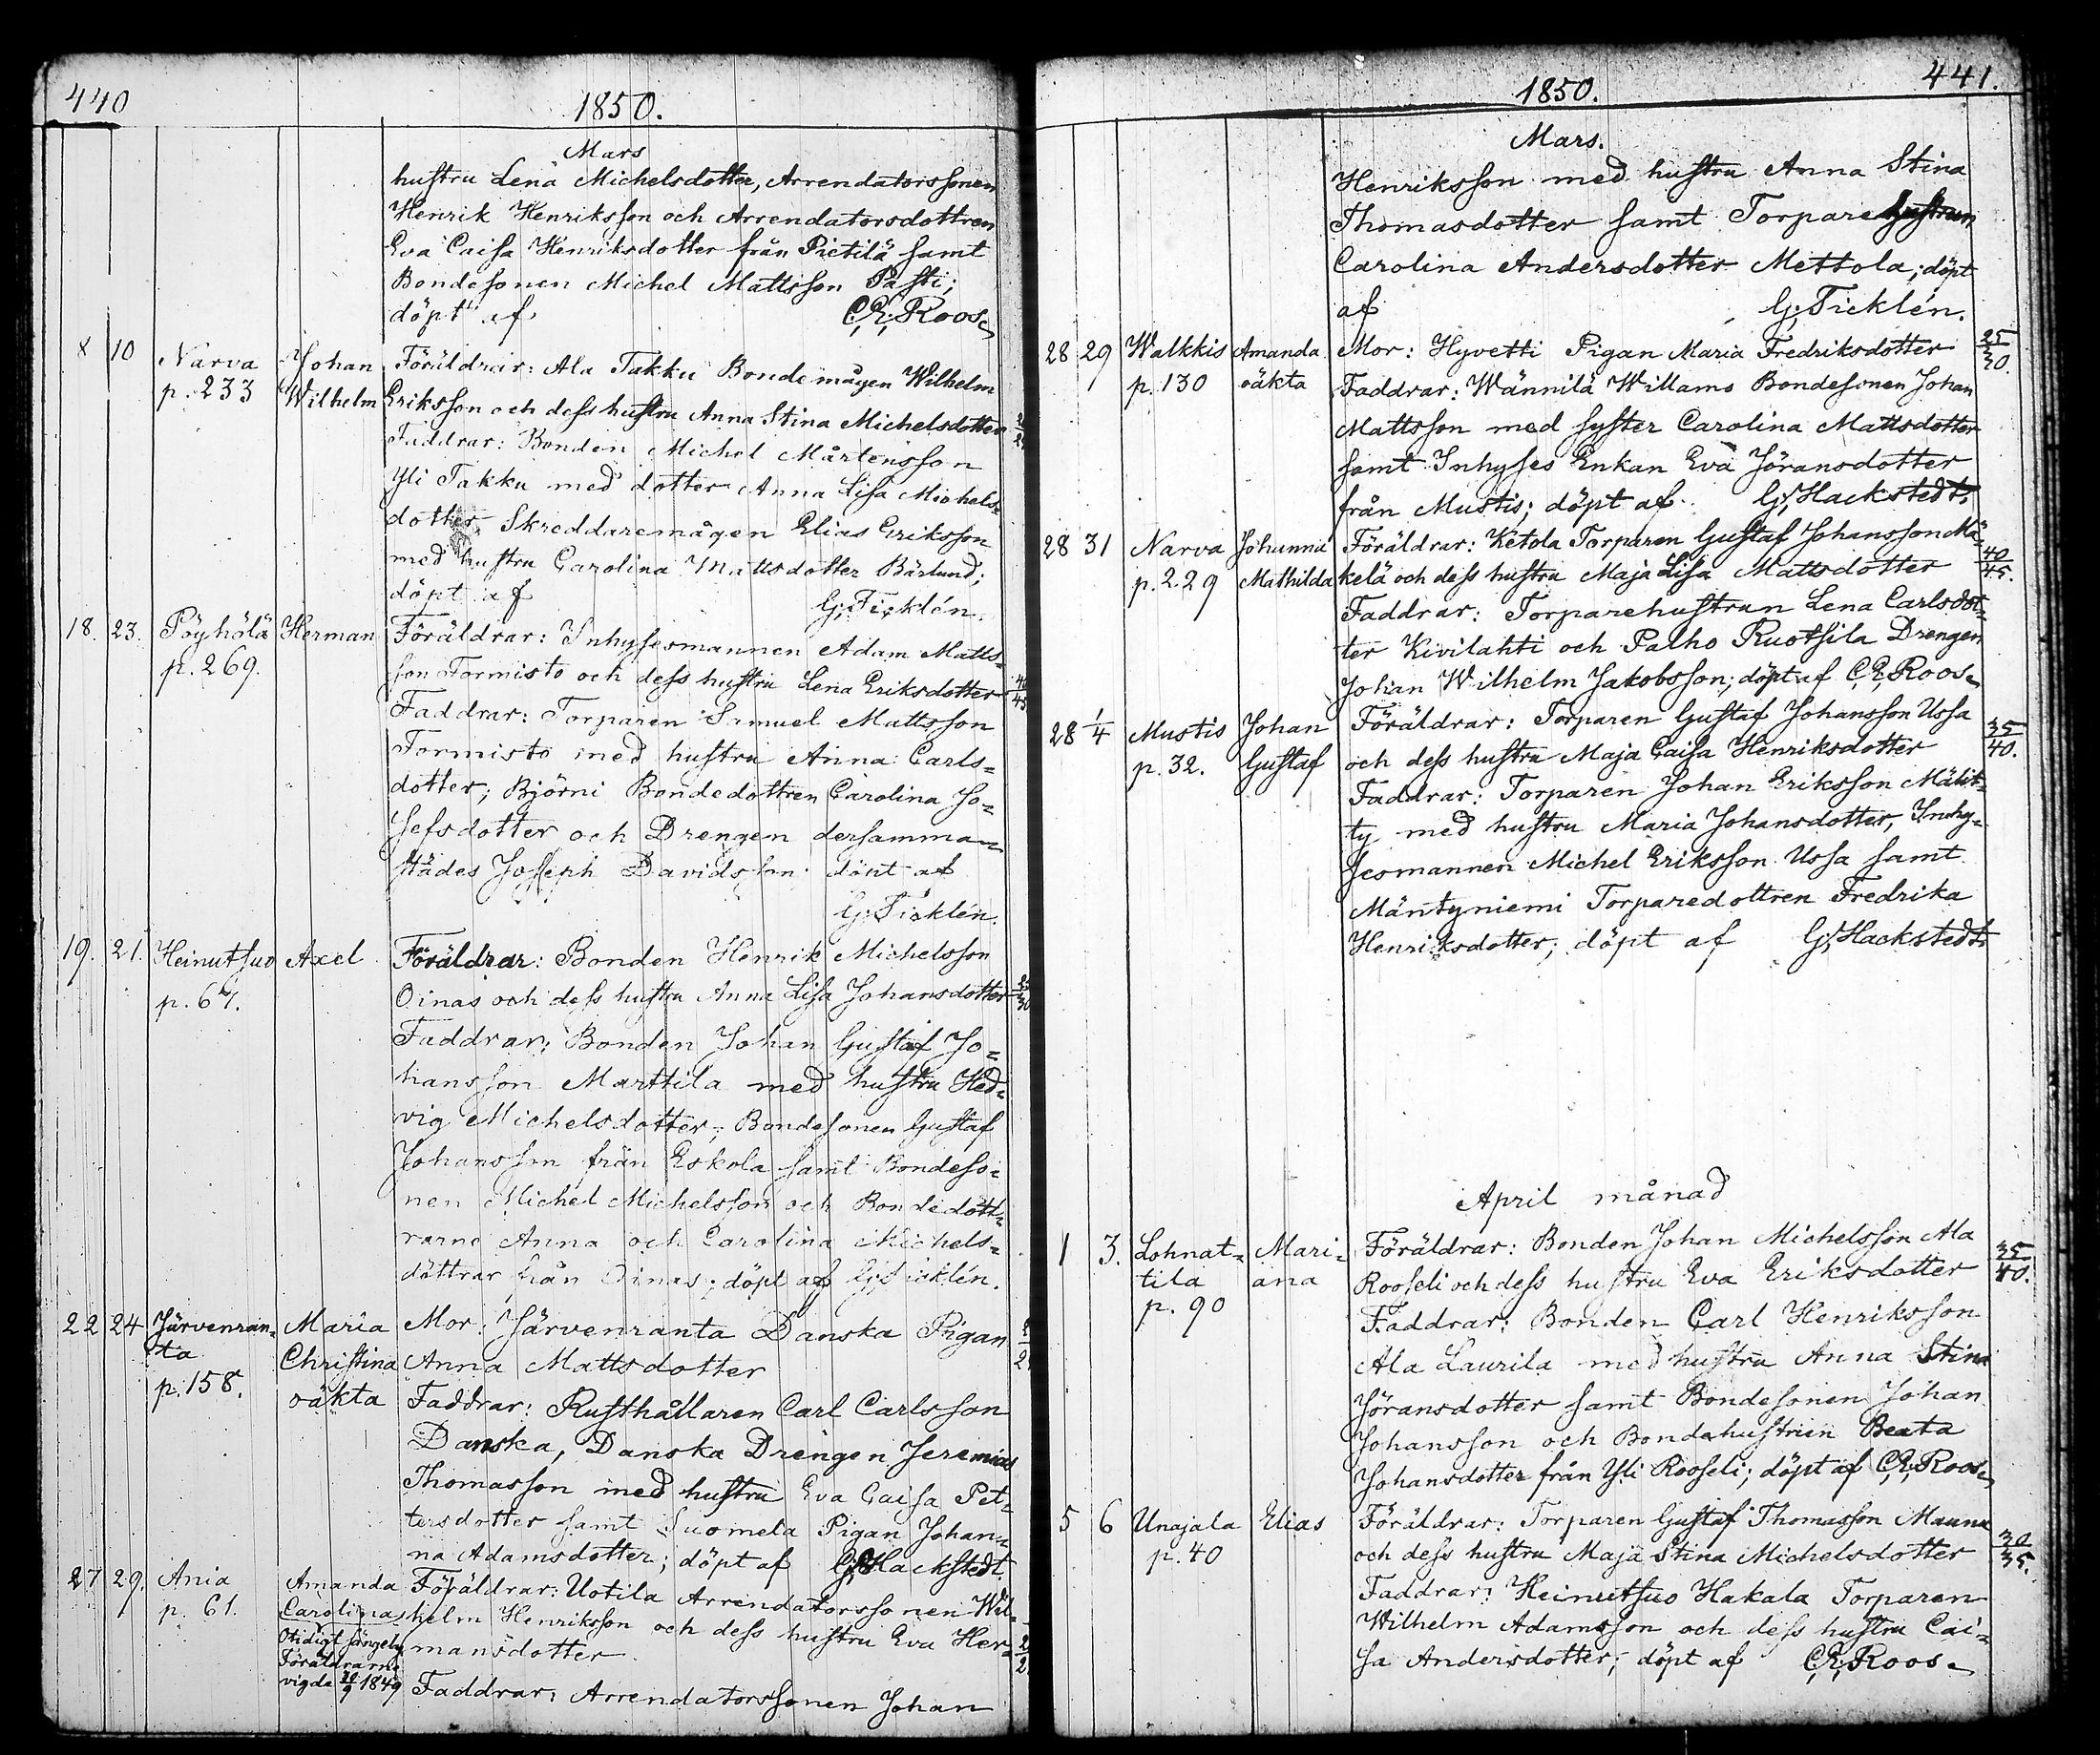 440
1850.
Mars
hustru Lena Michelsdotter, Arrendatorssonen
Henrik Henriksson och Arrendatorsdottren
Eva Caisa Henriksdotter från Pietilä samt
Bondesonen Michel Mattsson Pasti;
döpt af C,R, Roos.
8 10 Narva Johan Föräldrar: Ala Takku Bondemågen Wilhelm
p. 233 Wilhelm Eriksson och dess hustru Anna Stina Michelsdotter
Faddrar: Bonden Michel Mårtensson
Yli Takku med dotter Anna Lisa Michels-
dotter, Skreddaremågen Elias Eriksson
med hustru Carolina Mattsdotter Bärlund;
döpt af G; Ticklén.
18. 23. Pöyhölä Herman Föräldrar: Inhysesmannen Adam Matts-
p. 269. son Tormisto och dess hustru Lena Eriksdotter 40/45
Faddrar: Torparen Samuel Mattsson
Tormisto med hustru Anna Carls-
dotter; Björni Bondedottren Carolina Jo-
sefsdotter och Drengen dersamma-
städes Joseph Davidsson döpt af
G; Ticklén.
19. 21. Heinutsuo Axel Föräldrar: Bonden Henrik Michelsson
p. 67. Oinas och dess hustru Anna Lisa Johansdotter
Faddrar: Bonden Johan Gustaf Jo-
hansson Marttila med hustru Hed-
vig Michelsdotter; Bondesonen Gustaf
Johansson från Eskola samt Bondeso-
nen Michel Michelsson och Bondedott-
rarne Anna och Carolina Michels-
döttrar från Oinas; döpt af G; Ticklén.
22 24 Järvenran- Maria Mor: Järvenranta Danska Pigan
ta Christina Anna Mattsdotter
p. 158. oäkta Faddrar: Rusthållaren Carl Carlsson
Danska, Danska Drengen Jeremias
Thomasson med hustru Eva Caisa Pet-
tersdotter samt Suomela Pigan Johan-
na Adamsdotter; döpt af G; Hackstedt.
27 29. Ania Amanda Föräldrar: Uotila Arrendatorssonen Wil-
p. 61. Carolina helm Henriksson och dess hustru Eva Her-
Otidigt sängelag mansdotter
Föräldrarne
vigde 1849 Faddrar: Arrendatorssonen Johan
441.
1850.
Mars.
Henriksson med hustru Anna Stina
Thomasdotter samt Torparehustrun
Carolina Andersdotter Mettola; döpt
af G; Ticklén.
28 29 Walkkis Amanda Mor: Hyvetti Pigan Maria Fredriksdotter 25/30.
p. 130 oäkta Faddrar: Wännilä Willamo Bondesonen Johan
Mattsson med syster Carolina Mattsdotter
samt Inhyses Enkan Eva Jöransdotter
från Mustis; döpt af G; Hackstedt.
28 31 Narva Johanna Föräldrar: Ketola Torparen Gustaf Johansson Mä-
p. 229 Mathilda kelä och dess hustru Maja Lisa Mattsdotter 40/45.
Faddrar: Torparehustrun Lena Carlsdot-
ter Kivilahti och Palho Ruotsila Drengen
Johan Wilhelm Jakobsson; döpt af C,R, Roos.
28 1/4 Mustis Johan Föräldrar: Torparen Gustaf Johansson Ussa 35/40.
p. 32. Gustaf och dess hustru Maja Caisa Henriksdotter
Faddrar: Torparen Johan Eriksson Mäkit-
ty med hustru Maria Johansdotter, Inhy-
sesmannen Michel Eriksson Ussa samt
Mäntyniemi Torparedottren Fredrika
Henriksdotter; döpt af G; Hackstedt
April månad
1 3. Lohnat- Mari- Föräldrar: Bonden Johan Michelsson Ala 35/40.
tila ana Rooseli och dess hustru Eva Eriksdotter
p. 90 Faddrar: Bonden Carl Henriksson
Ala Laurila med hustru Anna Stina
Jöransdotter samt Bondesonen Johan
Johansson och Bondehustrun Beata
Johansdotter från Yli Rooseli; döpt af C,R, Roos.
5 6 Unajala Elias Föräldrar: Torparen Gustaf Thomasson Mauna 30/35.
p. 40 och dess hustru Maja Stina Michelsdotter
Faddrar: Heinutsuo Hakala Torparen
Wilhelm Adamsson och dess hustru Cai-
sa Andersdotter; döpt af C,R, Roos.